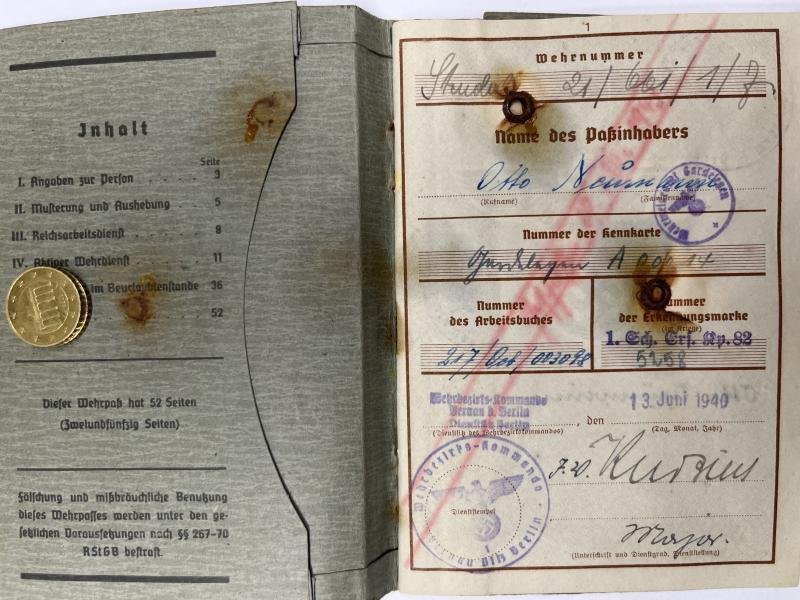 Inhalt
Seite
I. Angaben zur Person . . . . . 3
II. Musterung und Aushebung . . . 5
III. Reichsarbeitsdienst . . . . . 8
IV. Aktiver Wehrdienst . . . . 11
im Beurlaubtenstande 36
52
Dieser Wehrpaß hat 52 Seiten
(Zweiundfünfzig Seiten)
Fälschung und mißbräuchliche Benutzung
dieses Wehrpasses werden unter den ge-
setzlichen Voraussetzungen nach §§ 267-70
RStGB bestraft.
1
Wehrnummer
21/661/1/7
Name des Paßinhabers
Otto Neumann
(Rufname) (Familienname)
Nummer der Kennkarte
Gardelegen A
Nummer
des Arbeitsbuches
217/
Nummer
der Erkennungsmarke
(im Kriege)
1. Sch. Ers. Kp. 82
5258
Wehrbezirks-Kommando
Bernau b. Berlin
Dienstsitz Berlin
, den 13. Juni 1940
(Dienstsitz des Wehrbezirkskommandos) (Tag, Monat, Jahr)
Wehrbezirks-Kommando
Dienststempel
Berlin
J.V.
Major.
(Unterschrift und Dienstgrad, Dienststellung)